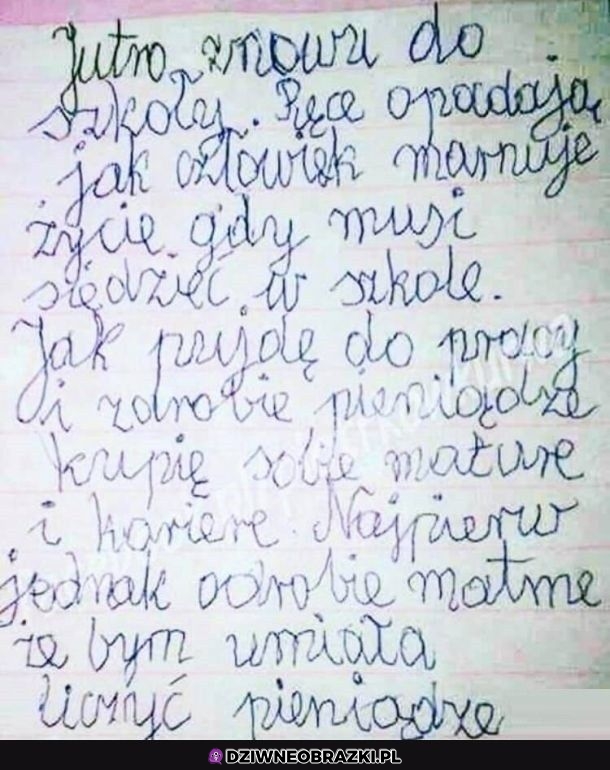 Jutro znowu do
szkoły. Ręce opadają
jak człowiek marnuje
życie gdy musi
siędzieć w szkole.
Jak pujdę do pracy
i zdrobie pieniądze
kupię sobie mature
i kariere. Najpierw
jednak odrobie matme
że bym umiała
liczyć pieniądze
DZIWNEOBRAZKI.PL